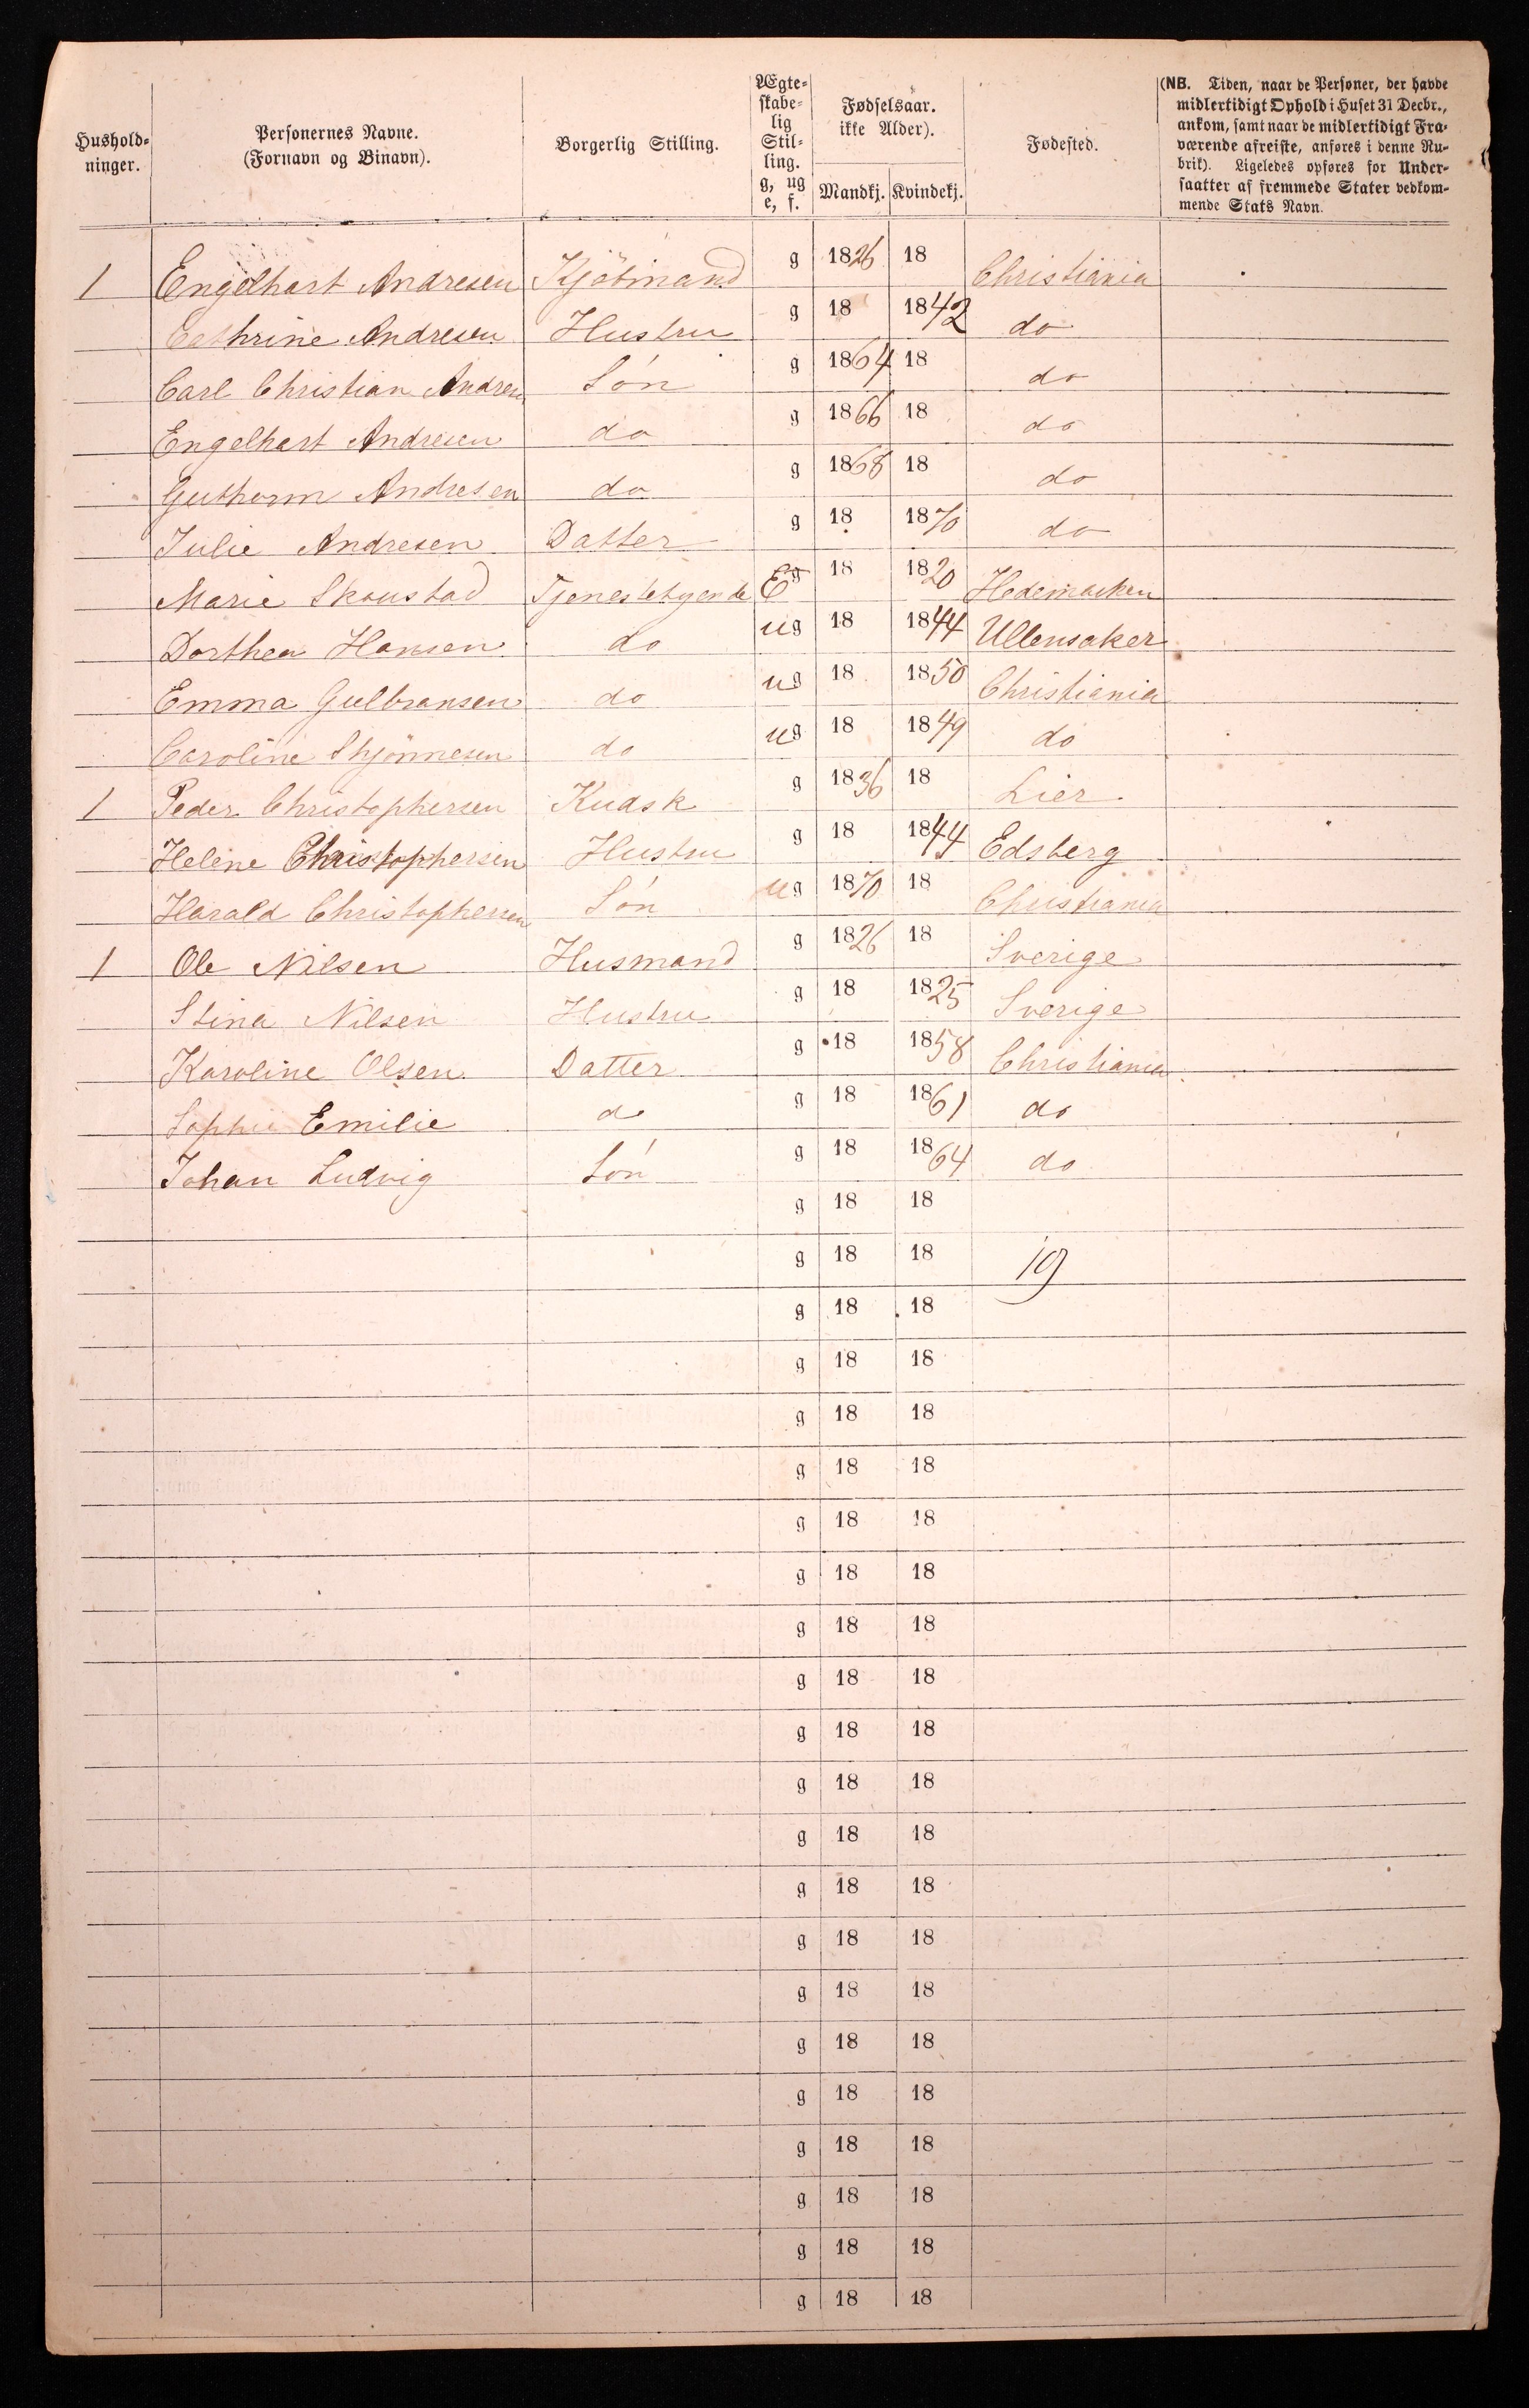 Hushold-
ninger.
Personernes Navne.
(Fornavn og Binavn).
Borgerlig Stilling.
Ægte-
skabe-
lig
Stil-
ling.
g, ug
e, f.
Fødselsaar.
ikke Alder).
Mandkj. Kvindekj.
Fødested.
(NB. Tiden, naar de Personer, der havde
midlertidigt Ophold i Huset 31 Decbr.,
ankom, samt naar de midlertidigt Fra-
værende afreiste, anføres i denne Ru-
brik). Ligeledes opføres for Under-
saatter af fremmede Stater vedkom-
mende Stats Navn.
1 Engelhart Andresen Kjöbmand g 1826 18 Christiania
Cathrine Andresen Hustru g 18 1842 do
Carl Christian Andresen Sön g 1864 18 do
Engelhart Andresen do g 1866 18 do
Guthorm Andresen do g 1868 18 do
Julie Andresen Datter g 18 1870 do
Marie Skoustad Tjenestetyende E g 18 1820 Hedemarken
Dorthea Hansen do ug 18 1844 Ullensaker
Emma Gulbransen do ug 18 1850 Christiania
Caroline do ug 18 1849 do
1 Peder Christophersen Kudsk g 1836 18 Lier
Heline Christophersen Hustru g 18 1844 Edsberg
Harald Christophersen Sön ug 1870 18 Christiania
1 Ole Nilsen Husmand g 1826 18 Sverige
Stina Nilsen Hustru g 18 1825 Sverige
Karoline Olsen Datter g 18 1858 Christiania
Sophie Emilie do g 18 1861 do
Johan Ludvig Sön g 18 1864 do
g 18 18
g 18 18 19
g 18 18
g 18 18
g 18 18
g 18 18
g 18 18
g 18 18
g 18 18
g 18 18
g 18 18
g 18 18
g 18 18
g 18 18
g 18 18
g 18 18
g 18 18
g 18 18
g 18 18
g 18 18
g 18 18
g 18 18